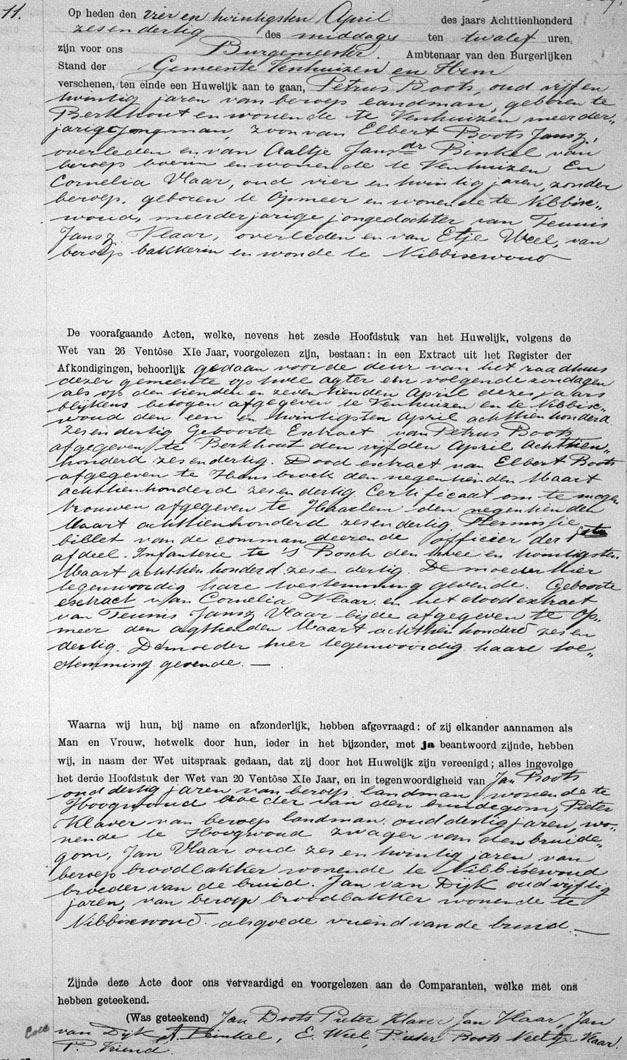 11.
Op heden den vier en twintigsten April des jaars Achttienhonderd
zes en dertig des middags ten twalef uren,
zijn voor ons Burgemeester Ambtenaar van den Burgerlijken
Stand der Gemeente Venhuizen en Hem
verschenen, ten einde een Huwelijk aan te gaan, Petrus Boots, oud vijf en
twintig jaren van beroep landman, geboren te
Berkhout en wonende te Venhuizen meerder-
jarige jongman, zoon van Elbert Boots Jansz,
overleden en van Aaltje Jansdr Binkel van
beroep boerin en wonende te Venhuizen En
Cornelia Vlaar, oud vier en twintig jaren, zonder
beroep, geboren te Opmeer en wonende te Nibbixe-
woud, meerderjarige jongedochter van Teunis
Jansz Vlaar, overleden en van Etje Weel, van
beroep bakkerin en wonde te Nibbixwoud
De voorafgaande Acten, welke, nevens het zesde Hoofdstuk van het Huwelijk, volgens de
Wet van 26 Ventôse XIe Jaar, voorgelezen zijn, bestaan: in een Extract uit het Register der
Afkondigingen, behoorlijk gedaan voor de deur van het raadhuis
dezer gemeente op twee agter een volgende zondagen
als op den tienden en zeventienden April dezes jaars
blijkens betoogen afgegeven te Venhuizen en te Nibbix-
woud den een en twintigsten April achttienhonderd
zes en dertig Geboorte Extract van Petrus Boots
afgegeven te Berkhout den vijfden April achttien-
honderd zes en dertig. Dood extract van Elbert Boots
afgegeven te Hensbroek den negenden Maart
achttienhonderd zes en dertig Certificaat om te mogen
trouwen afgegeven te Haarlem den negentienden
Maart achttienhonderd zes en dertig. Permissie
billet van de commandeerende officier der
afdeel. Infanterie te 's Bosch den twee en twintigsten
Maart achttienhonderd zes en dertig. De moeder hier
tegenwoordig hare toestemming gevende. Geboorte
extract van Cornelia Vlaar en het dood extract
van Teunis Jansz Vlaar bijde afgegeven te Op-
meer den agttienden Maart achttienhonderd zes en
dertig. De moeder hier tegenwoordig haare toe-
stemming gevende. —
Waarna wij hun, bij name en afzonderlijk, hebben afgevraagd: of zij elkander aannamen als
Man en Vrouw, hetwelk door hun, ieder in het bijzonder, met ja beantwoord zijnde, hebben
wij, in naam der Wet uitspraak gedaan, dat zij door het Huwelijk zijn vereenigd; alles ingevolge
het derde Hoofdstuk der Wet van 20 Ventôse XIe Jaar, en in tegenwoordigheid van Jan Boots
oud dertig jaren van beroep landman, wonende te
Hoogwoud broeder van den bruidegom, Pieter
Klaver van beroep landman oud dertig jaren, wo-
nende te Hoogwoud zwager van den bruide-
gom, Jan Vlaar oud zes en twintig jaren, van
beroep broodbakker wonende te Nibbixwoud
broeder van de bruid. Jan van Dijk oud vijftig
jaren, van beroep broodbakker wonende te
Nibbixwoud alsgoede vriend van de bruid —
Zijnde deze Acte door ons vervaardigd en voorgelezen aan de Comparanten, welke met ons
hebben geteekend.
(Was geteekend) Jan Boots Pieter Klaver Jan Vlaar Jan
van Dijk A. Binkel, E. Weel, Pieter Boots Neeltje Vlaar.
P. Vriend.